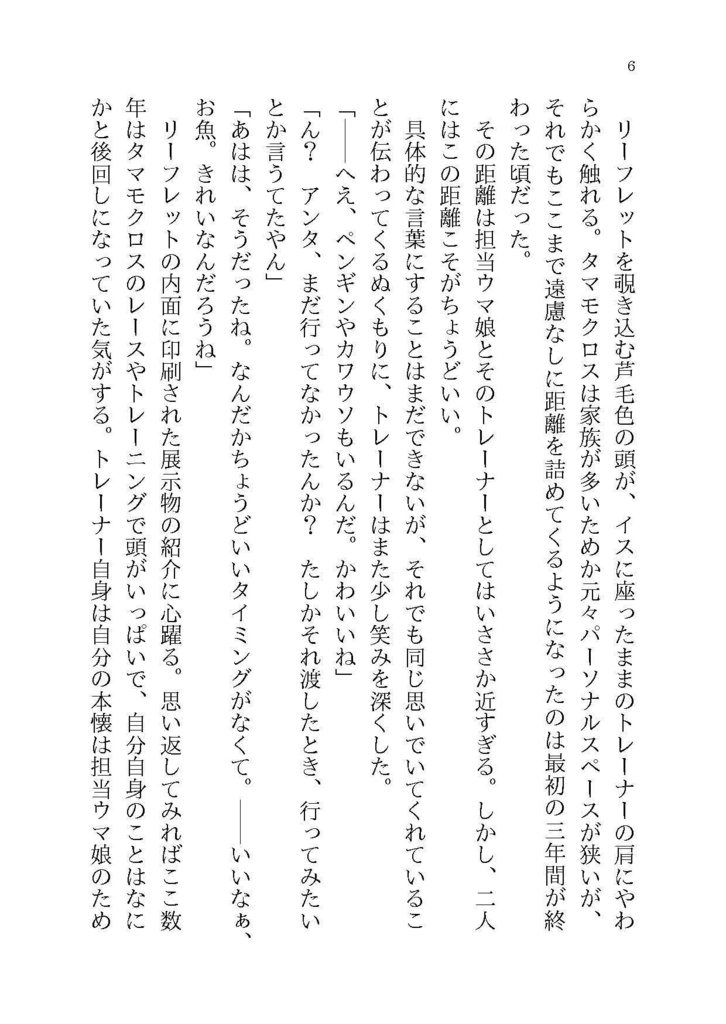 6
リーフレットを覗き込む芦毛色の頭が、イスに座ったままのトレーナーの肩にやわ
らかく触れる。タマモクロスは家族が多いためか元々パーソナルスペースが狭いが、
それでもここまで遠慮なしに距離を詰めてくるようになったのは最初の三年間が終
わった頃だった。
その距離は担当ウマ娘とそのトレーナーとしてはいささか近すぎる。しかし、二人
にはこの距離こそがちょうどいい。
具体的な言葉にすることはまだできないが、それでも同じ思いでいてくれているこ
とが伝わってくるぬくもりに、トレーナーはまた少し笑みを深くした。
「――へえ、ペンギンやカワウソもいるんだ。かわいいね」
「ん？　アンタ、まだ行ってなかったんか？　たしかそれ渡したとき、行ってみたい
とか言うてたやん」
「あはは、そうだったね。なんだかちょうどいいタイミングがなくて。――いいなぁ、
お魚。きれいなんだろうね」
リーフレットの内面に印刷された展示物の紹介に心躍る。思い返してみればここ数
年はタマモクロスのレースやトレーニングで頭がいっぱいで、自分自身のことはなに
かと後回しになっていた気がする。トレーナー自身は自分の本懐は担当ウマ娘のため